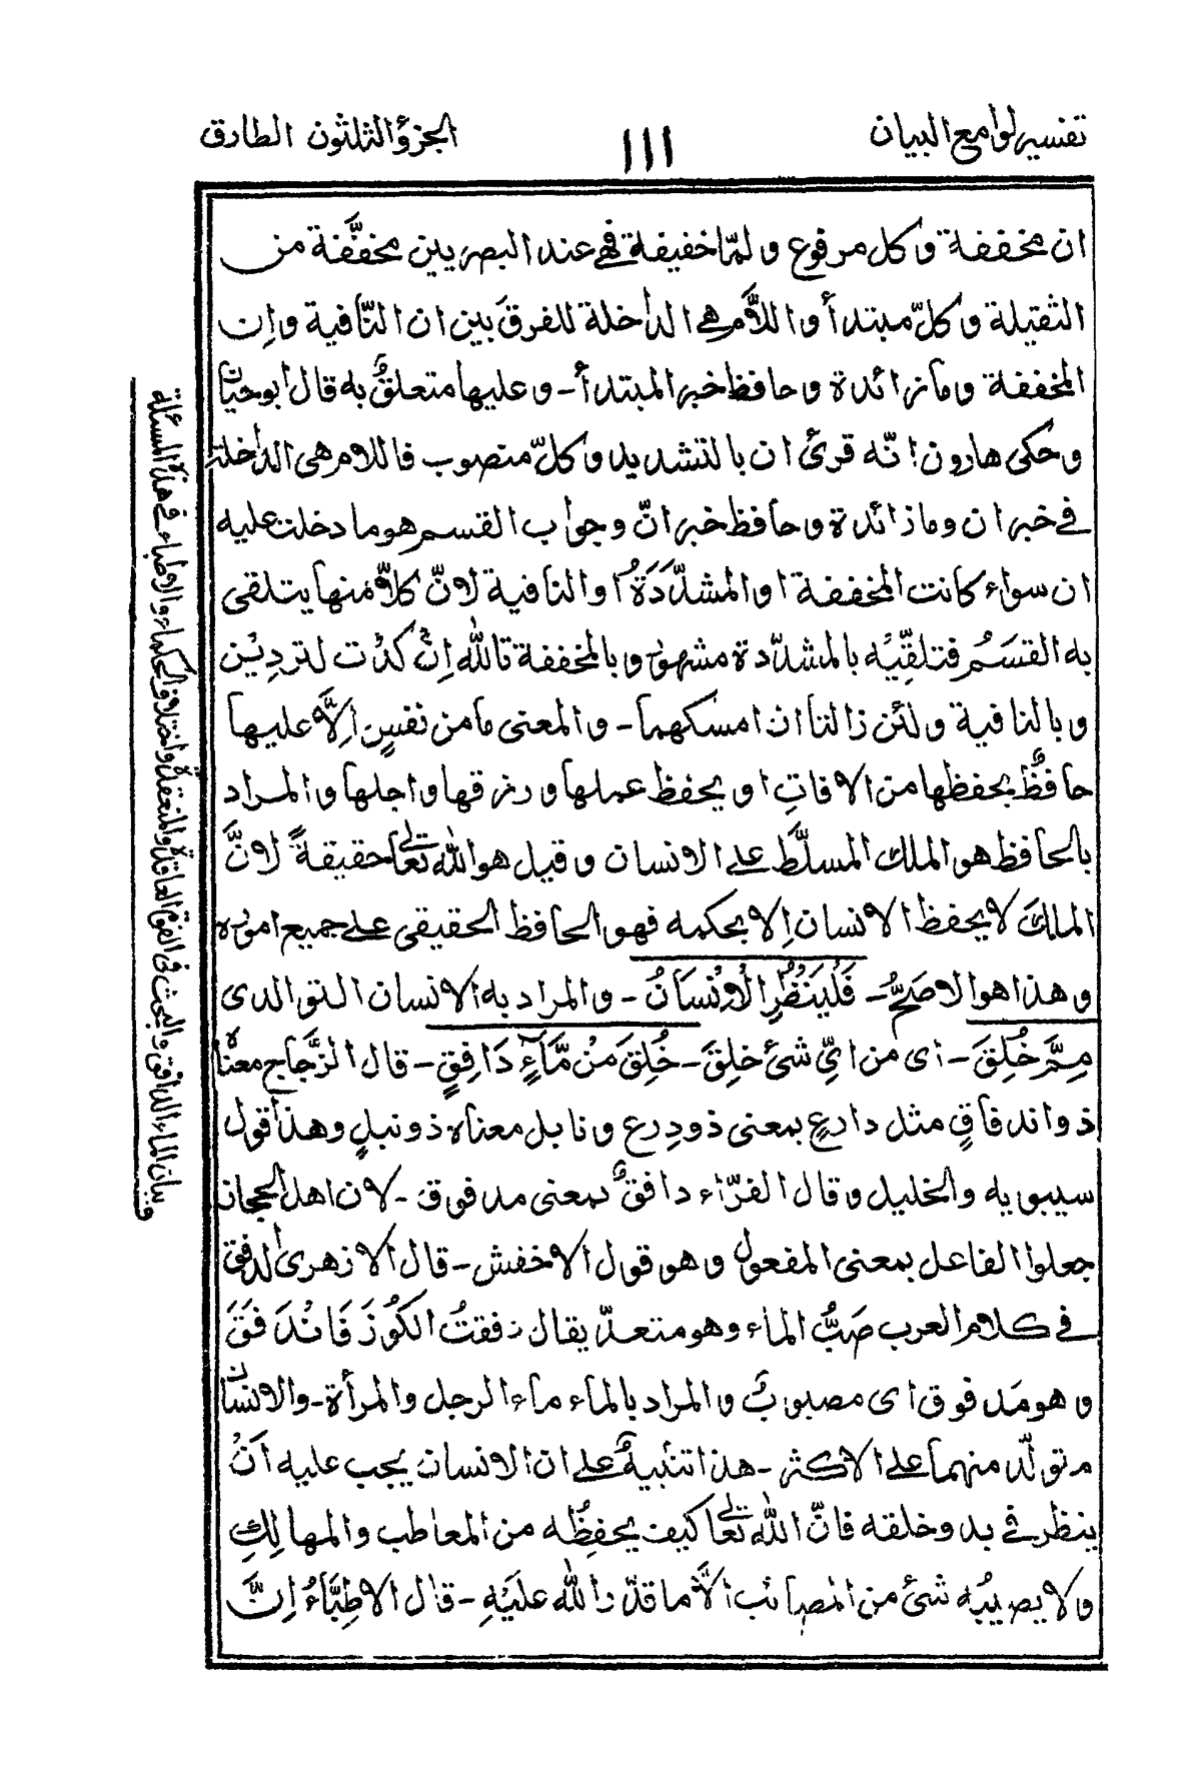 تفسير لوامع البيان
١١١
الجزؤ الثلثون الطارق
ان مخففة وكل مرفوع ولمّا خفيفة فهى عند البصريين مخفَّفة من
الثقيلة وكلّ مبتدأ واللاَّم هى الداخلة للفرق بين ان النّافية وإن
المخففة وما زائدة وحافظ خبر المبتدأ - وعليها متعلقٌ به قال ابوحيان
وحكى هارون انّه قرئ ان بالتشديد وكلّ منصوب فاللام هى الداخلة
فى خبر ان وما زائدة وحافظ خبر انّ وجواب القسم هو ما دخلت عليه
ان سواء كانت المخففة او المشدَّدَةُ او النافية لانّ كلاًّ منها يتلقى
به القسَمُ فتلقِّيْه بالمشدّدة مشهور وبالمخففة تالله اِنْ كدْت لتردِيْن
وبالنافية ولئن زالتا ان امسكهما - والمعنى ما من نفسٍ اِلاَّ عليها
حافظٌ يحفظها من الافاتِ او يحفظ عملها ورزقها واجلها والمراد
بالحافظ هو الملك المسلَّط على الانسان وقيل هو الله تعالى حقيقةً لانَّ
الملكَ لا يحفظ الانسان اِلا بحكمه فهو الحافظ الحقيقى على جميع اموره
وهذا هو الاصَحُّ - فَلْيَنْظُرِ الْاِنْسَانُ - والمراد به الانسان النو الدى
مِمَّ خُلِقَ - اى من اىِّ شئ خلِقَ - خُلِقَ مَنْ مَّآءٍ دَافِقٍ - قال الزَّجاج معناه
ذو اندفاقٍ مثل دارعٍ بمعنى ذو دِرع ونابل معناه ذو نبلٍ وهذا قول
سيبويه والخليل وقال الفرّاء دافقٌ بمعنى مدفوق - لان اهل الحجاز
جعلوا الفاعل بمعنى المفعول وهو قول الاخفش - قال الازهرى الدفق
فى كلام العرب صَبُّ الماء وهو متعدّ يقال دفقتُ الكُوْزَ فَانْدَفَقَ
وهو مَدفوق اى مصبوبٌ والمراد بالماء ماء الرجل والمرأة - والانسان
متولّد منهما على الاكثر - هذا تنبيهٌ على ان الانسان يجب عليه اَنْ
ينظر فى بدو خلقه فانّ الله تعالى كيف يحفِظُه من المعاطب والمهالِكِ
ولا يصيبُه شئ من المصائب الاَّ ما قدّر الله علَيْهِ - قال الاطِبَّاءُ اِنَّ
فى بيان الماء الدافق والبحث فى القوة العاقدة والمنعقدة واختلاف الحكماء والاطباء فى هذه المسئلة